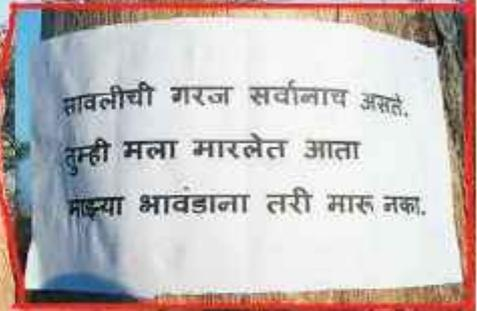 सावलीची गरज सर्वानाच असते.
तुम्ही मला मारलेत आता
माझ्या भावंडाना तरी मारू नका.